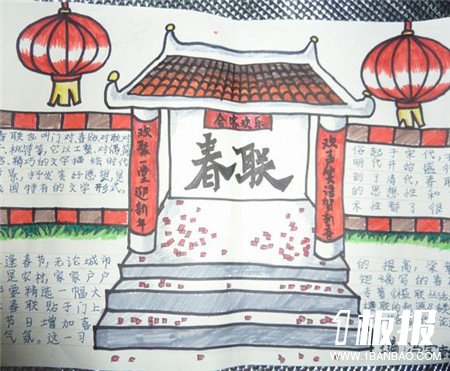 合家欢乐
春联
欢聚一堂迎新年
欢声笑语贺新春
春联也叫门对春贴,对联对
桃符等,它以工整、对偶简
精巧的文字描绘时代
景,抒发美好愿望是
国特有的文学形式。
俗起于宋代,
明代开始盛行
到了清代,春联
的思想性和
术性都了很
逢春节,无论城市
是农村,家家户户
要精选一幅大
春联贴于门上
节日增加喜
气氛。这一习
的提高,梁章
钜编写的春
专著《槛联丛话
1板报
WWW.1BANBAO.COM